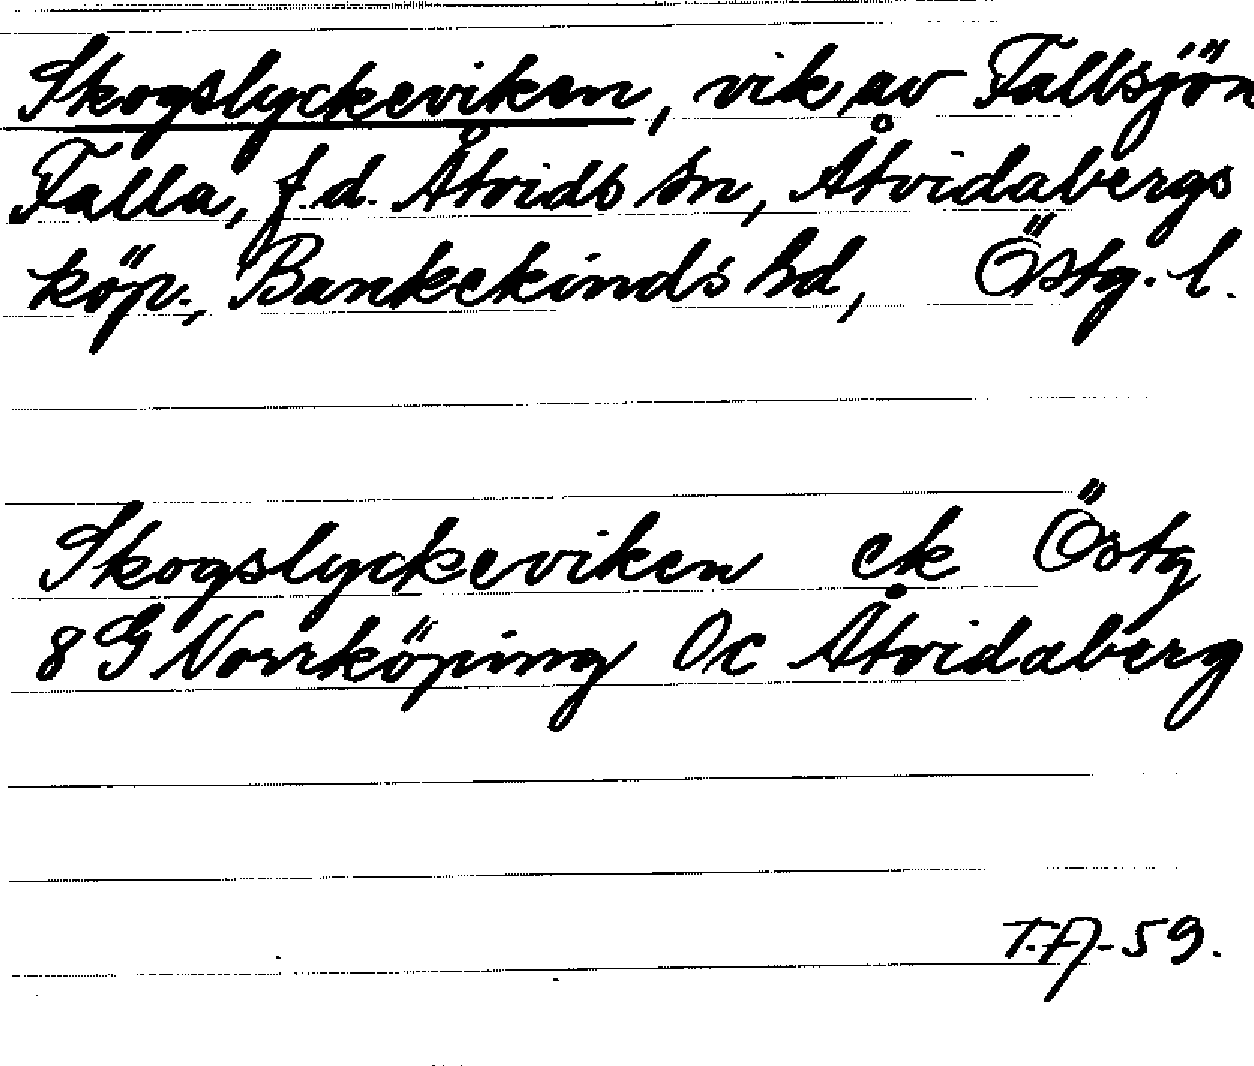 Skogslyckeviken, vik av Fallsjön
Falla, f.d. Åtvids sn, Åtvidabergs
köp., Bankekinds hd, Östg. l.
Skogslyckeviken ek Östg
8 G Norrköping 0c Åtvidaberg
T.A-59.